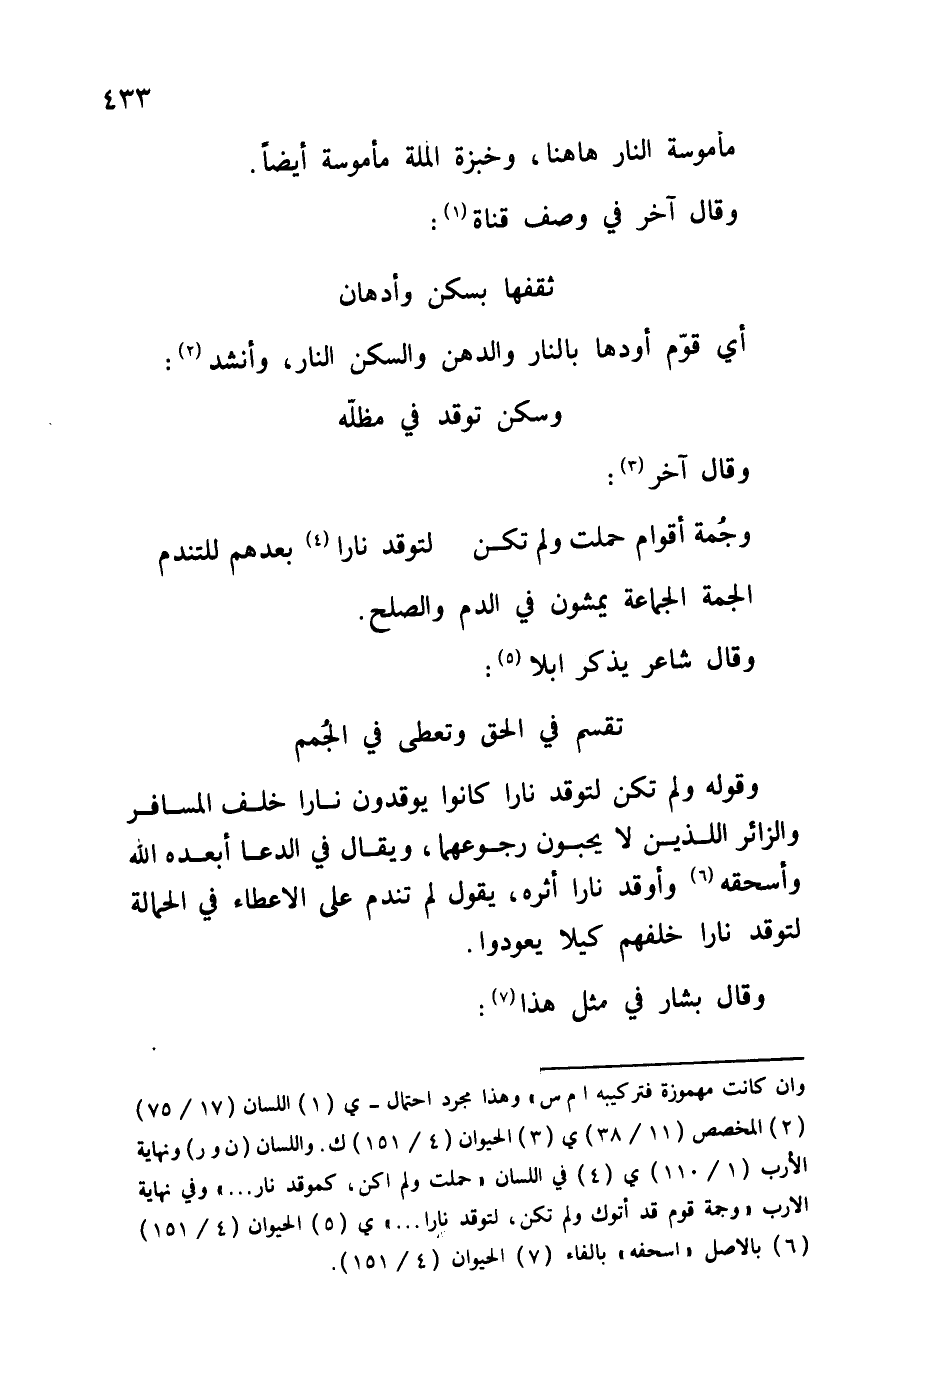 ٤٣٣
مأموسة النار هاهنا، وخبزة الملة مأموسة أيضاً.
وقال آخر في وصف قناة (١) :
ثقفها بسكن وأدهان
أي قوّم أودها بالنار والدهن والسكن النار، وأنشد (٢) :
وسكن توقد في مظلّه
وقال آخر (٣) :
وجُمة أقوام حملت ولم تكـن لتوقد نارا (٤) بعدهم للتندم
الجمة الجماعة يمشون في الدم والصلح.
وقال شاعر يذكر ابلا (٥) :
تقسم في الحق وتعطى في الجُمم
وقوله ولم تكن لتوقد نارا كانوا يوقدون نـارا خلـف المسـافـر
والزائر اللـذيـن لا يحبـون رجـوعهما، ويقـال في الدعـا أبعـده الله
وأسحقه (٦) وأوقد نارا أثره، يقول لم تندم على الاعطاء في الحمالة
لتوقد نارا خلفهم كيلا يعودوا.
وقال بشار في مثل هذا (٧) :
وان كانت مهموزة فتركيبه ا م س» وهذا مجرد احتمال ـ ي (١) اللسان (١٧ / ٧٥)
(٢) المخصص (١١ / ٣٨) ي (٣) الحيوان (٤ / ١٥١) ك. واللسان (ن و ر) ونهاية
الأرب (١ / ١١٠) ي (٤) في اللسان «حملت ولم اكن، كموقد نار...» وفي نهاية
الارب «وجمة قوم قد أتوك ولم تكن، لتوقد نارا...» ي (٥) الحيوان (٤ / ١٥١)
(٦) بالاصل «اسحفه» بالفاء (٧) الحيوان (٤ / ١٥١).